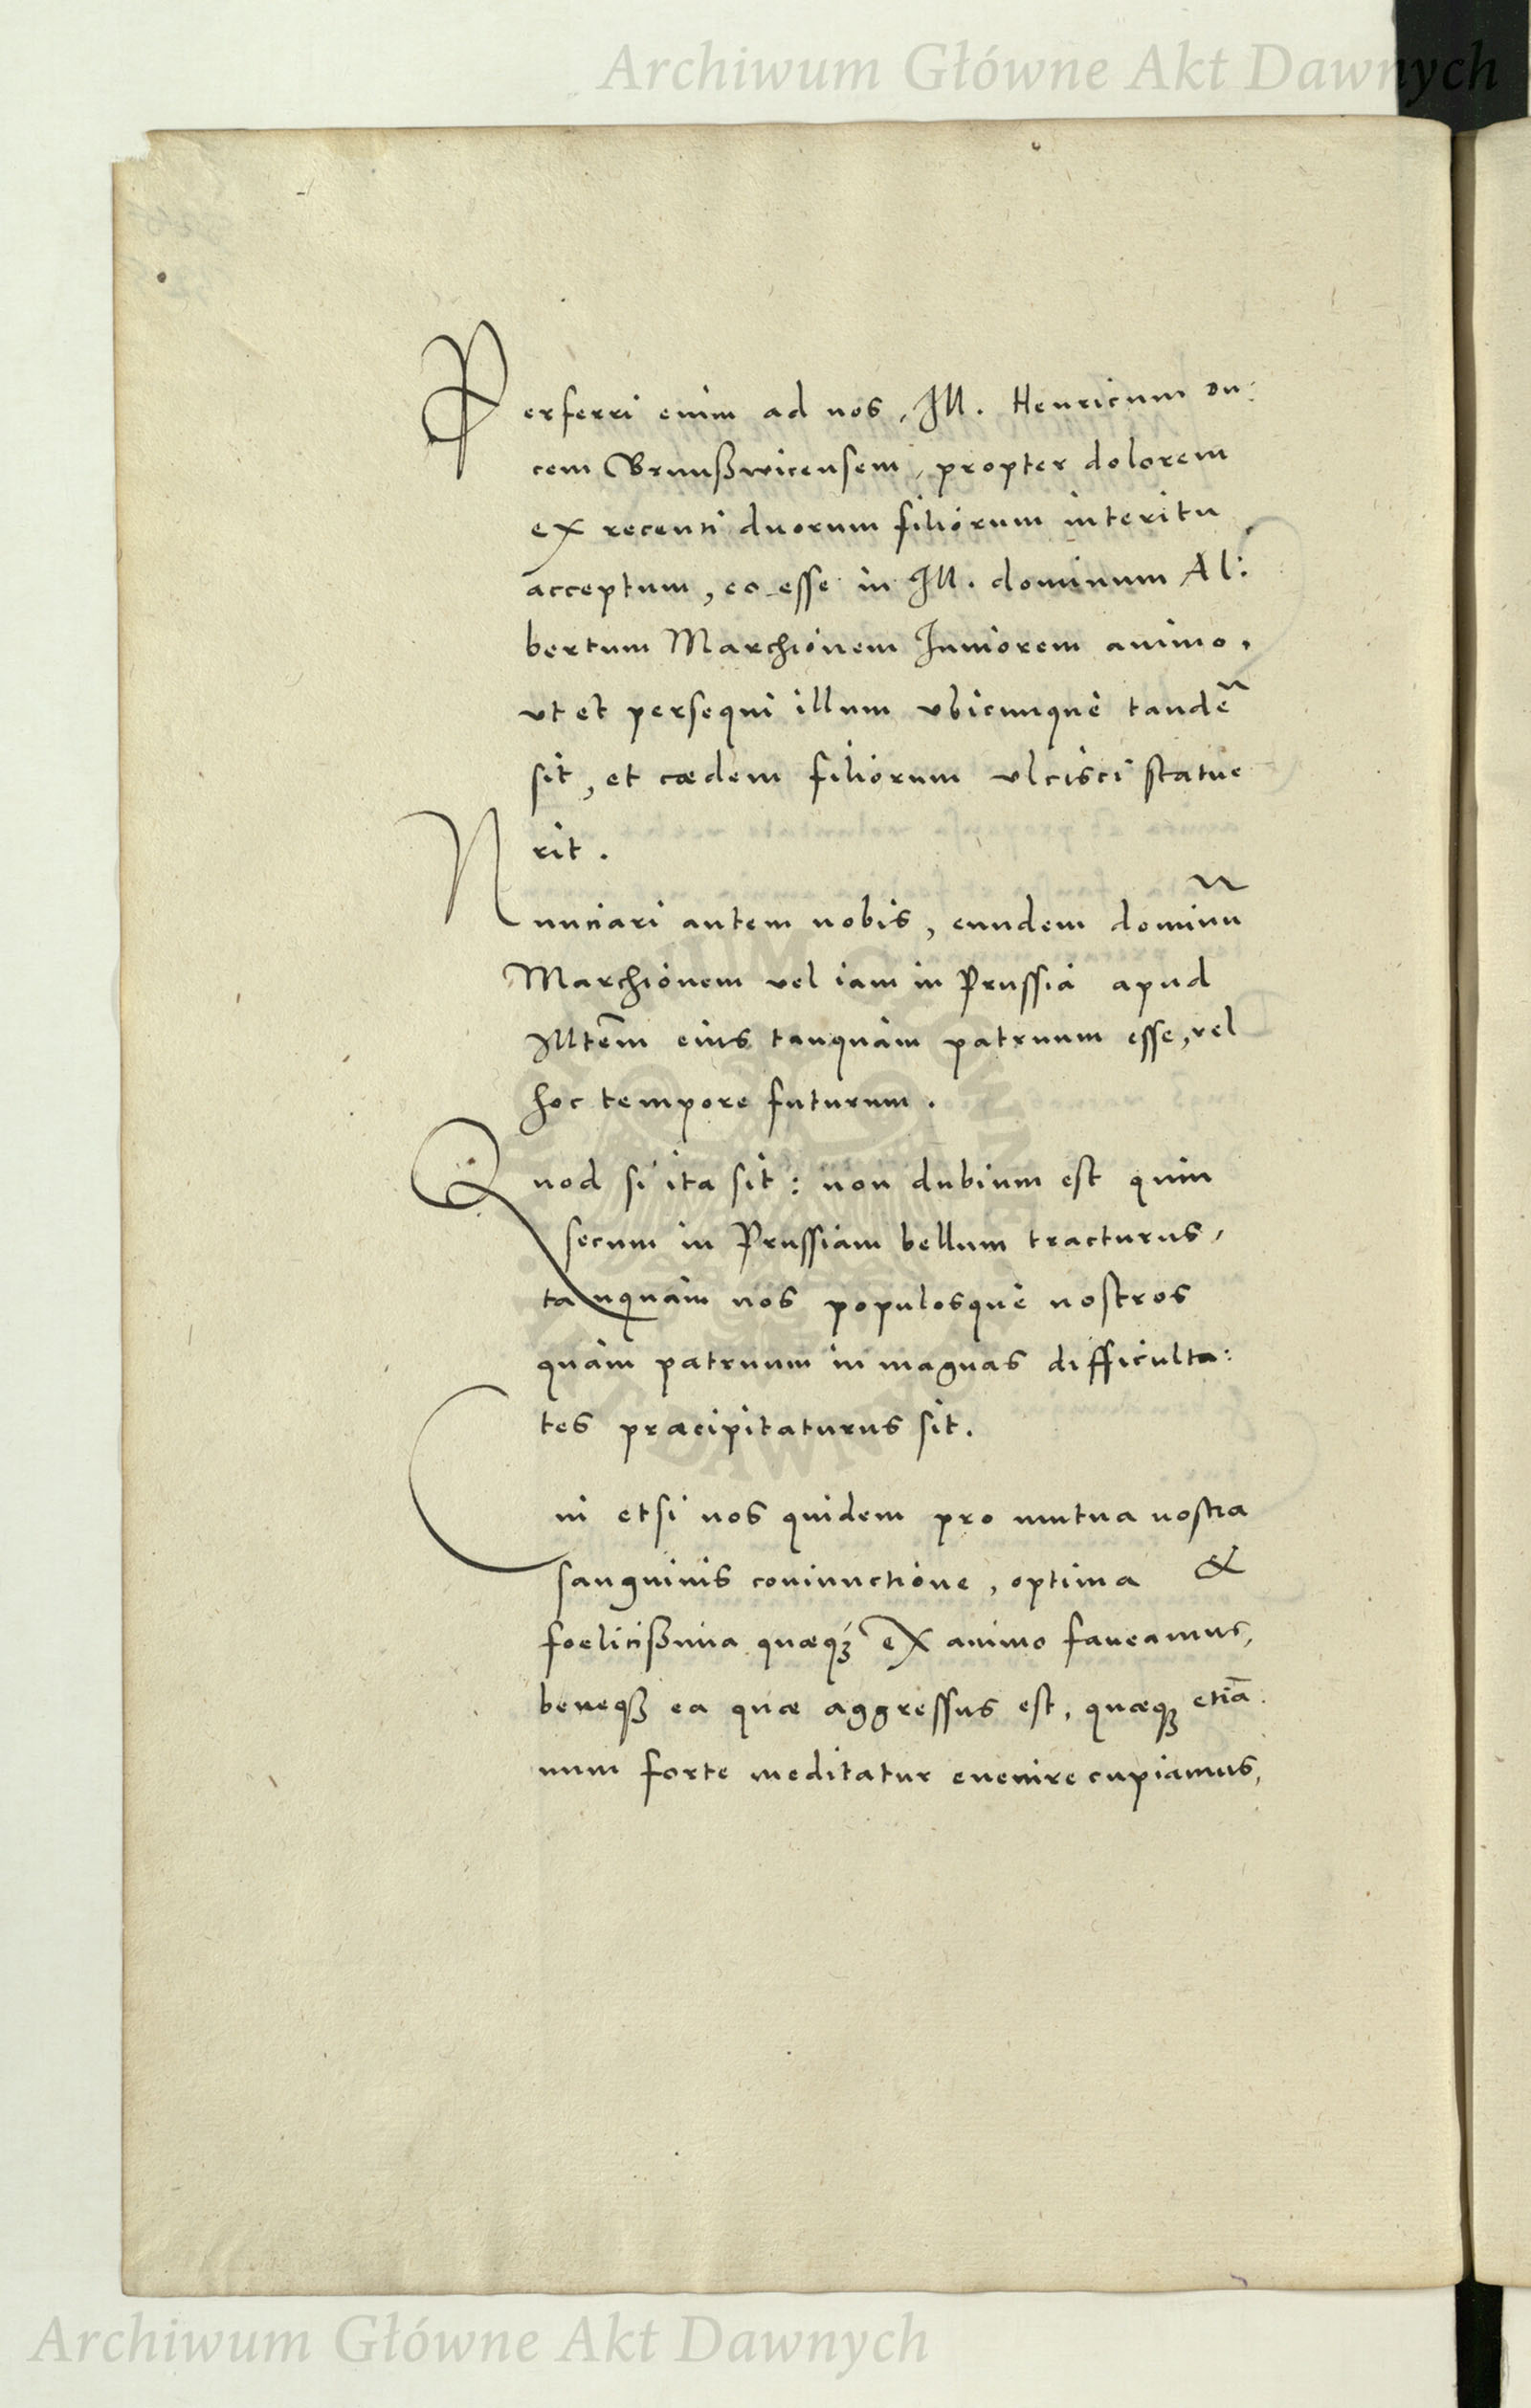 Archiwum Główne Akt Dawnych
Perferri enim ad nos, Ill. Henricum du:
cem Brunßwicensem, propter dolorem
ex recenti duorum filiorum interitu
acceptum, eo esse in Ill. dominum Al:
bertum Marchionem Iuniorem animo,
ut et persequi illum ubicunque tandē
sit, et cædem filiorum ulcisci statue
rit.
Nunciari autem nobis, eundem dominū
Marchionem vel iam in Prussia apud
Illtēm eius tanquàm patruum esse, vel
hoc tempore futurum.
Quod si ita sit: non dubium est quin
secum in Prussiam bellum tracturus,
tanquàm nos populosquè nostros
quàm patruum in magnas difficulta:
tes præcipitaturus sit.
Cui etsi nos quidem pro mutua nostra
sanguinis coniunctione, optima &
foelicißima quæq; ex animo faueamus,
beneq; ea quæ aggressus est, quæq; etiā
num forte meditatur euenire cupiamus,
Archiwum Główne Akt Dawnych